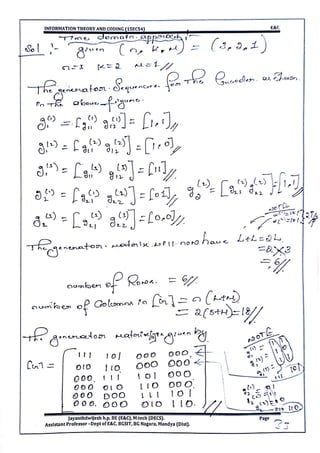 INFORMATION THEORY AND CODING (15EC54) E&C.
Time domain approach:
Sol :- given (n, K, M) = (3, 2, 1)
n=3 K=2 M=1//
The generator Sequences for the encoder as shown
in the above figure.
g₁⁽¹⁾ = [g₁₁⁽¹⁾ g₁₂⁽¹⁾] = [1, 1]//
g₁⁽²⁾ = [g₁₁⁽²⁾ g₁₂⁽²⁾] = [1, 0]//
g₁⁽³⁾ = [g₁₁⁽³⁾ g₁₂⁽³⁾] = [11]//
g₂⁽¹⁾ = [g₂₁⁽¹⁾ g₂₂⁽¹⁾] = [01]// g₂⁽²⁾ = [g₂₁⁽²⁾ g₂₂⁽²⁾] = [1,1]//
g₂⁽³⁾ = [g₂₁⁽³⁾ g₂₂⁽³⁾] = [0,0]//
NOTE
The generator matrix will now have L+L = 2L
= 2×3
= 6//
number of Rows = 6//
number of Columns in [G] = n (L+M)
= 18//
The generator matrix given by
NOTE
[G] =
111 101 000 000
010 110 000 000
000 111 101 000
000 010 110 000
000 000 111 101
000 000 010 110
101
110
Jayanthdwijesh h.p. BE (E&C), M.tech (DECS).
Assistant Professor –Dept of E&C. BGSIT, BG Nagara, Mandya (Dist).
Page